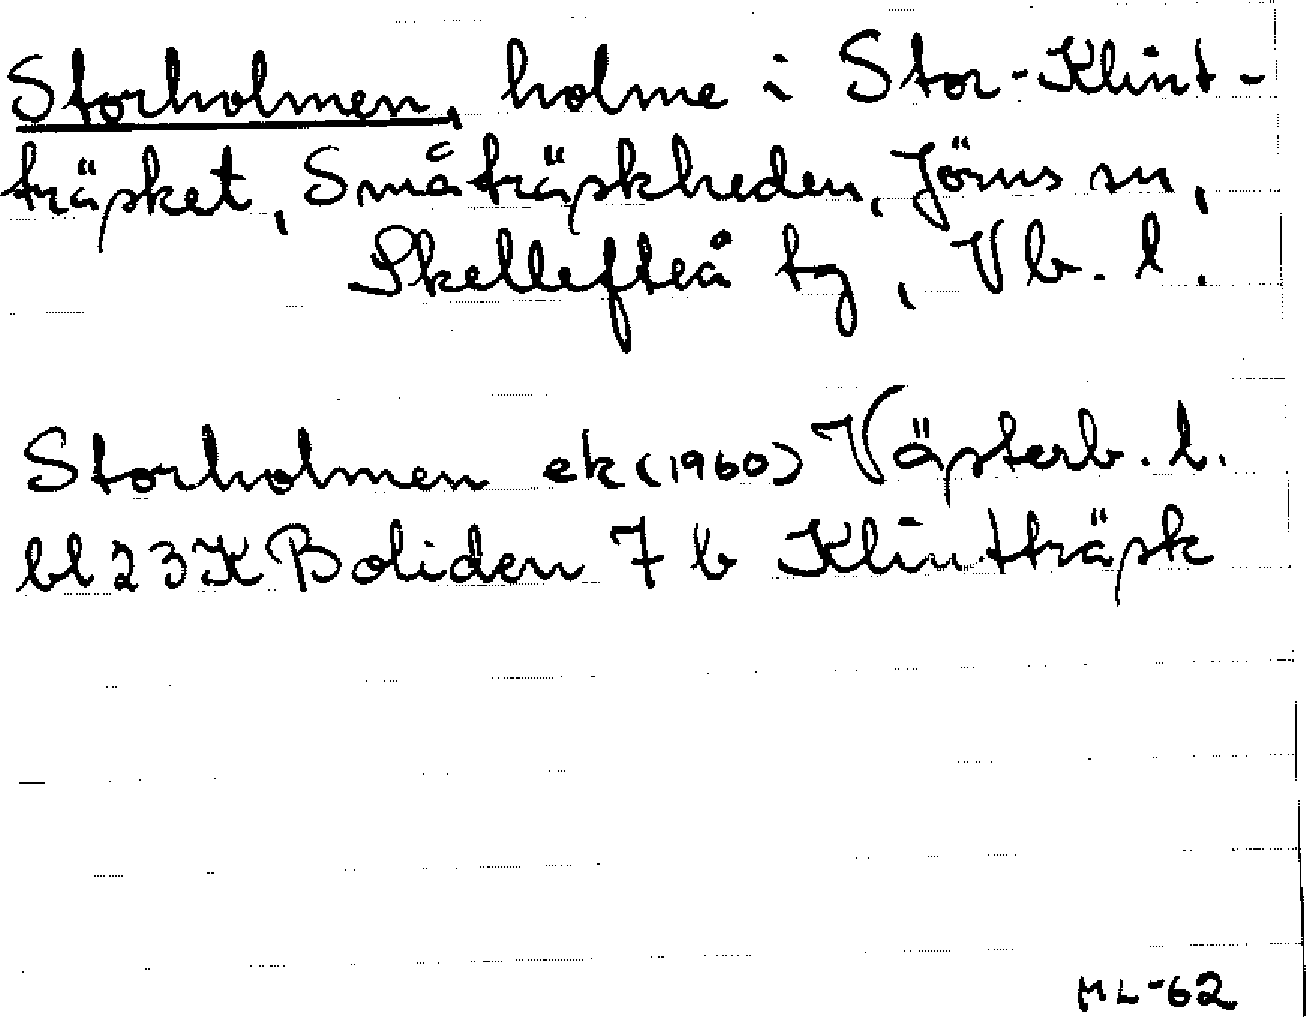 Storholmen, holme i Stor-Klint-
träsket, Småträskheden, Jörns sn,
Skellefteå tg, Vb. l.
Storholmen ek (1960) Västerb. l.
bl 23 K Boliden 7 b Klintträsk
ML-62